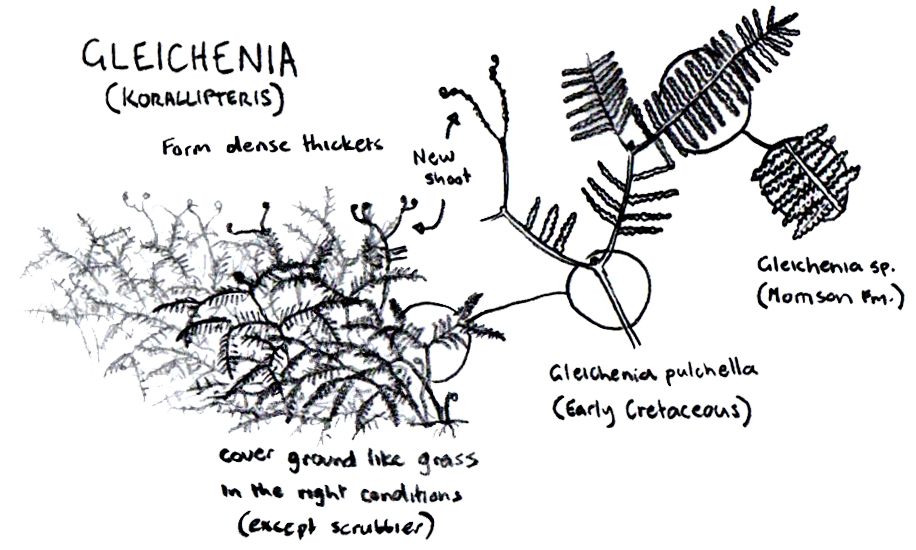 GLEICHENIA
(KORALLIPTERIS)
Form dense thickets
New
shoot
Gleichenia sp.
(Morrison Fm.)
Gleichenia pulchella
(Early Cretaceous)
cover ground like grass
in the right conditions
(except scrubbier)